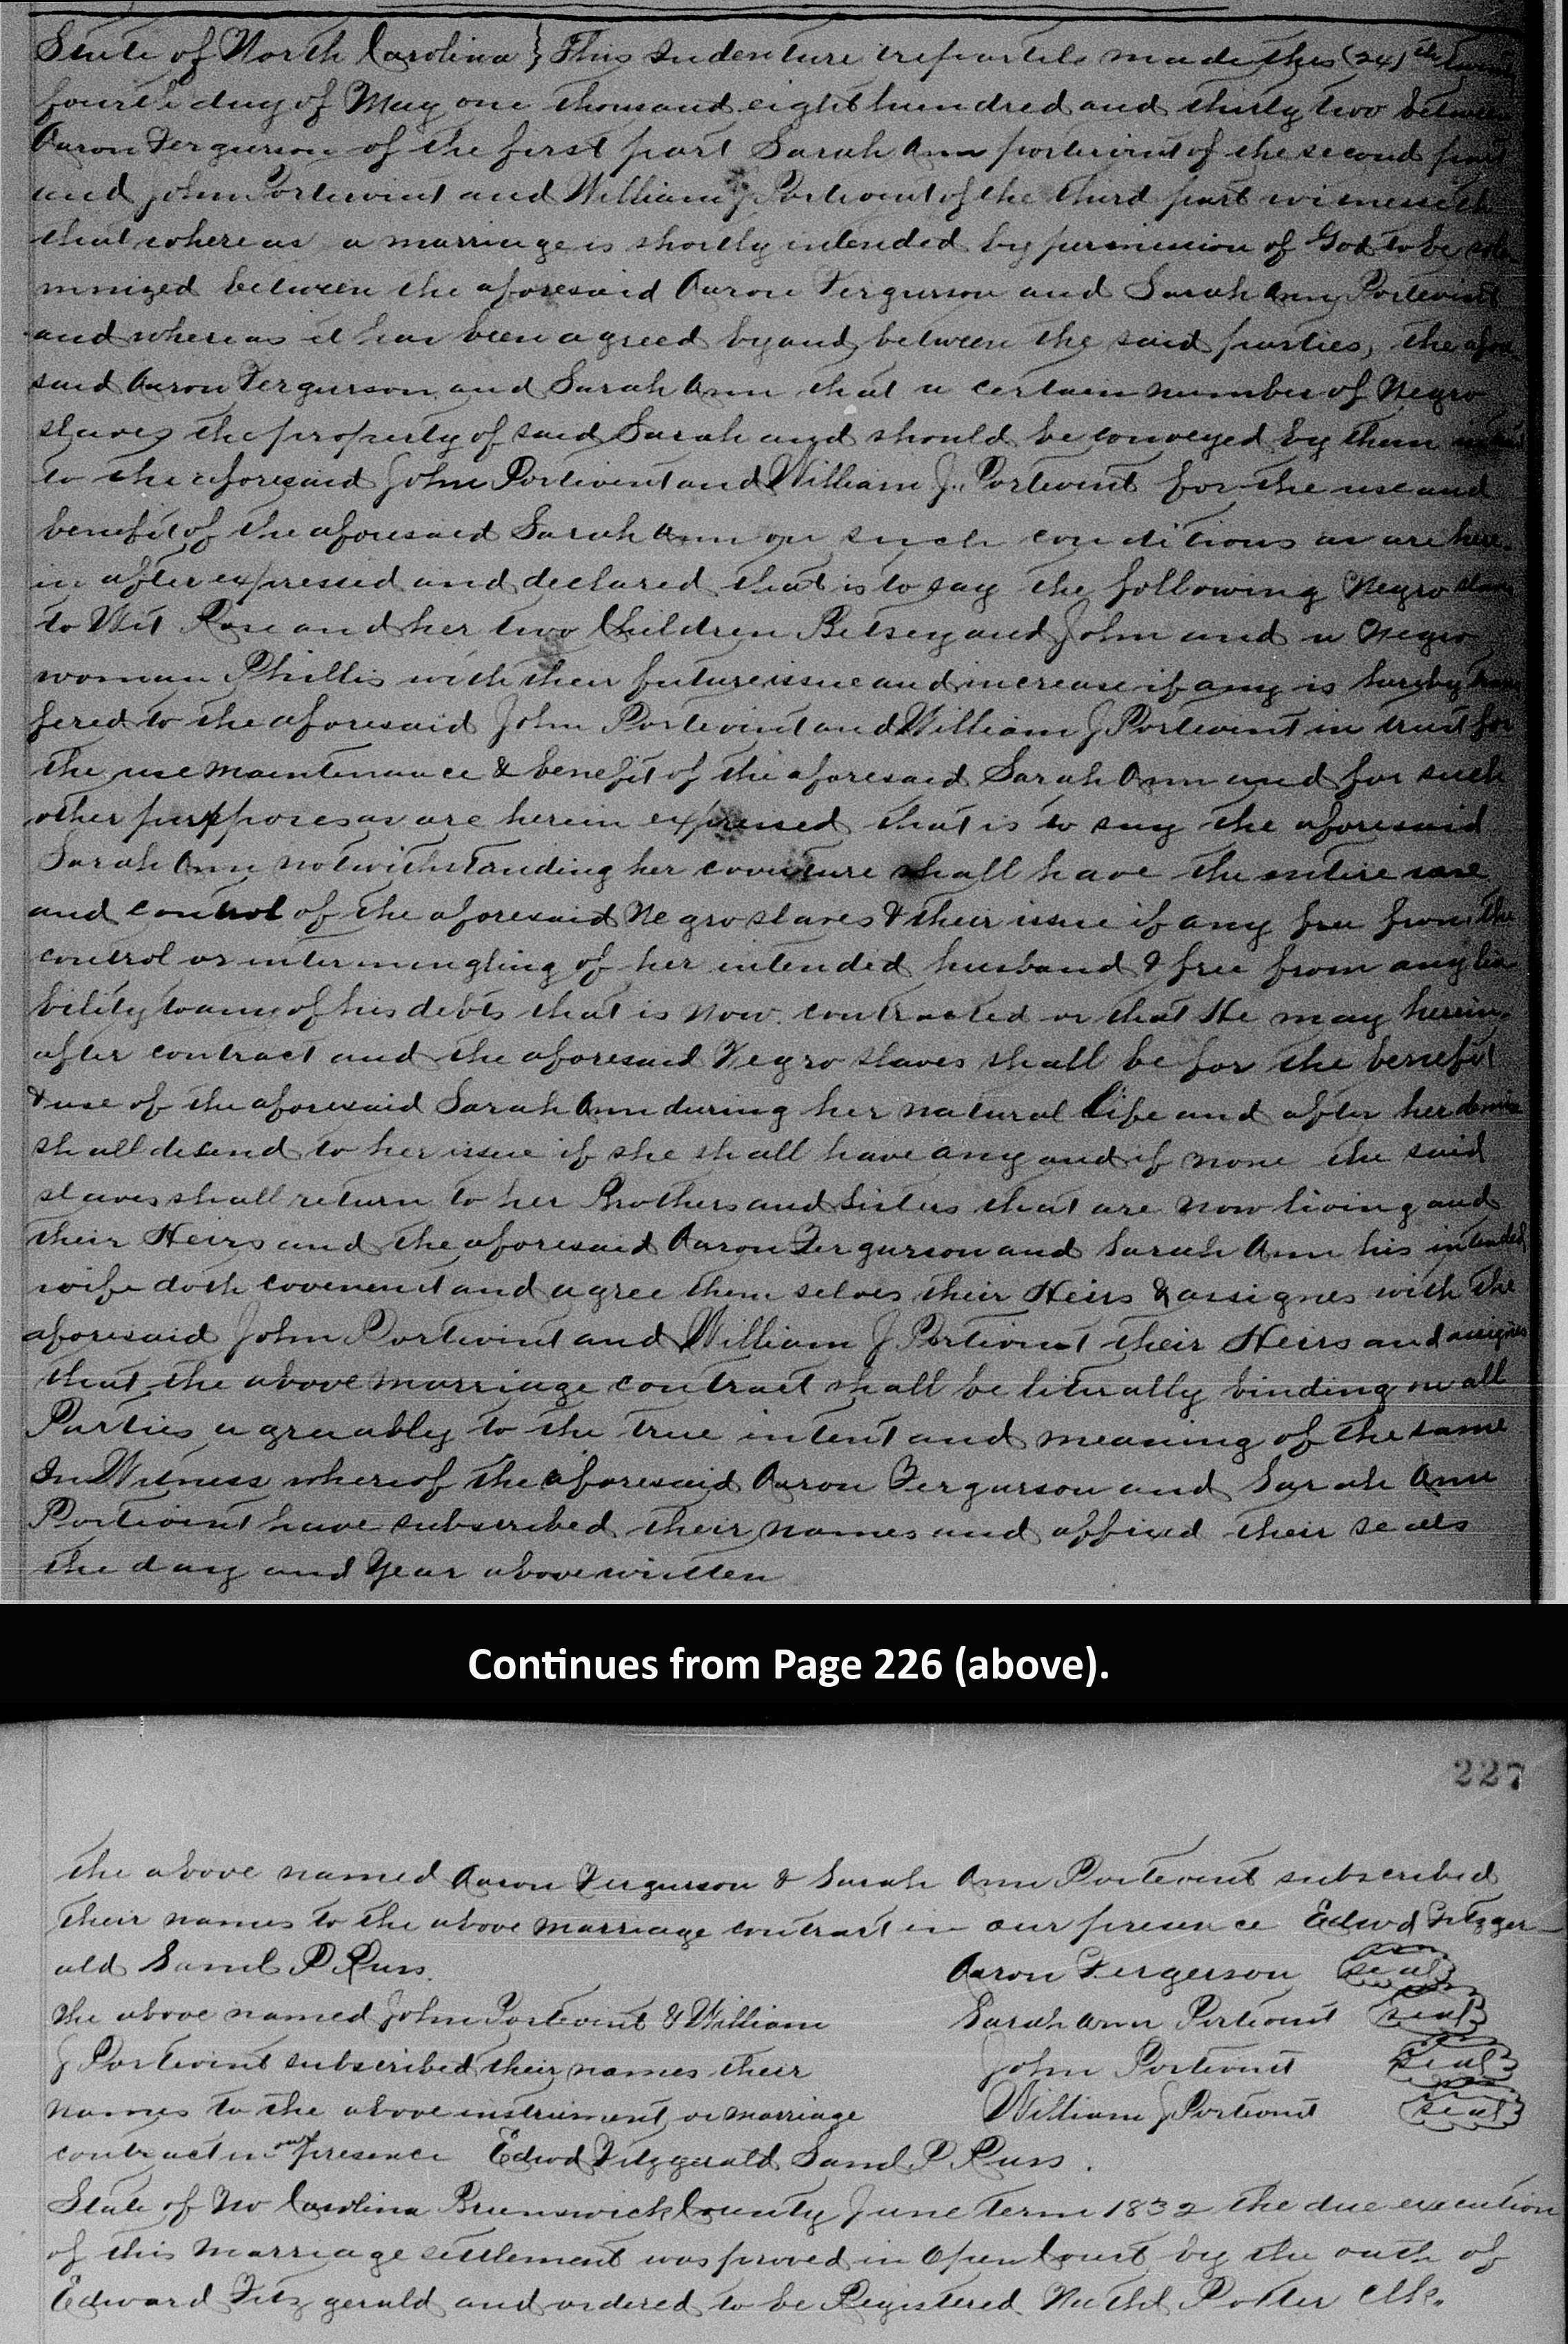 State of North Carolina } This Indenture trepartile made this (24)th twenty
fourth day of May one thousand eight hundred and thirty two between
Aaron Fergurson of the first part Sarah Ann portevint of the second part
and John Portevint and William J Portevent of the third part witnesseth
that whereas a marriage is shortly intended by permission of God to be sole
mnized between the aforesaid Aaron Fergurson and Sarah Ann Portevint
and whereas it has been agreed by and between the said parties, the afore
said Aaron Fergurson and Sarah Ann that a certain number of Negro
slaves the property of said Sarah and should be conveyed by them
to the aforesaid John Portevint and William J. Portevint for the use and
benefit of the aforesaid Sarah Ann on such conditions as are here-
in after expressed and declared that is to say the following Negro slaves
to Wit Rose and her two Children Betsey and John and a Negro
woman Phillis with their future issue and increase if any is hereby trans
fered to the aforesaid John Portevint and William J Portevint in trust for
the use maintenance & benefit of the aforesaid Sarah Ann and for such
other purpposes as are herein expressed that is to say the aforesaid
Sarah Ann notwithstanding her coverture shall have the entire care
and control of the aforesaid Negro slaves & their issue if any free from the
control or intermingling of her intended husband & free from any lia
bility to any of his debts that is now contracted or that He may herein-
after contract and the aforesaid Negro slaves shall be for the benefit
& use of the aforesaid Sarah Ann during her natural Life and after her demise
shall desend to her issue if she shall have any and if none the said
slaves shall return to her Brothers and Sisters that are now living and
their Heirs and the aforesaid Aaron Fergurson and Sarah Ann his intended
wife doth covenent and agree them selves their Heirs & assignes with the
aforesaid John Portevint and William J Portevint their Heirs and assignes
that the above marriage contract shall be literally binding on all
Parties agreeably to the true intent and meaning of the same
In Witness whereof the aforesaid Aaron Fergurson and Sarah Ann
Portevint have subscribed their names and affixed their seals
the day and Year above written
Continues from Page 226 (above).
227
the above named Aaron Fergurson & Sarah Ann Portevint subscribed
their names to the above marriage contract in our presence Edwd Fitzger
ald Saml P Russ. Aaron Fergerson seal
The above named John Portevint & William Sarah Ann Portevint seal
J Portevint subscribed their names their John Portevint seal
names to the above instrument or marriage William J Portevint seal
contract in our presence Edwd Fitzgerald Saml P Russ.
State of No Carolina Brunswick County June Term 1832 the due execution
of this marriage settlement was proved in Open Court by the oath of
Edward Fitzgerald and ordered to be Registered Nathl Potter Clk.